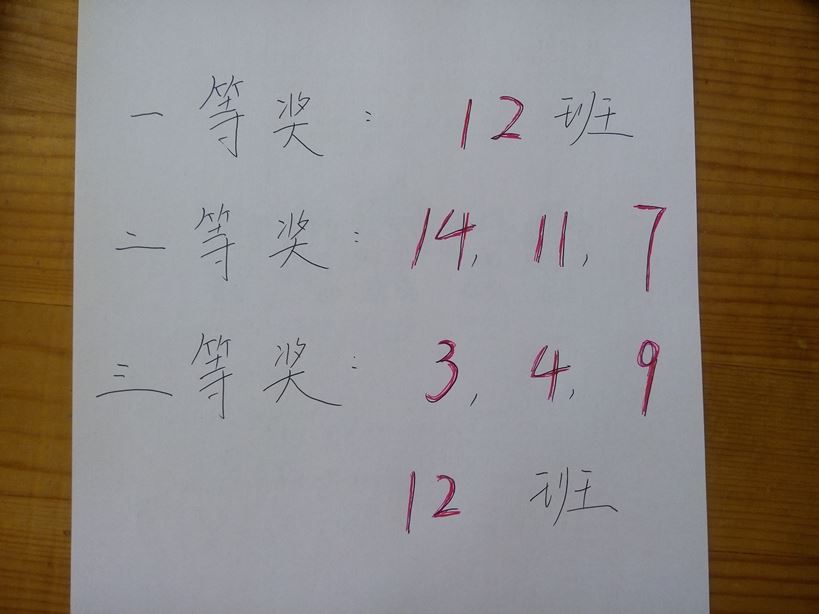 一等奖: 12班
二等奖: 14, 11, 7
三等奖: 3, 4, 9
12 班